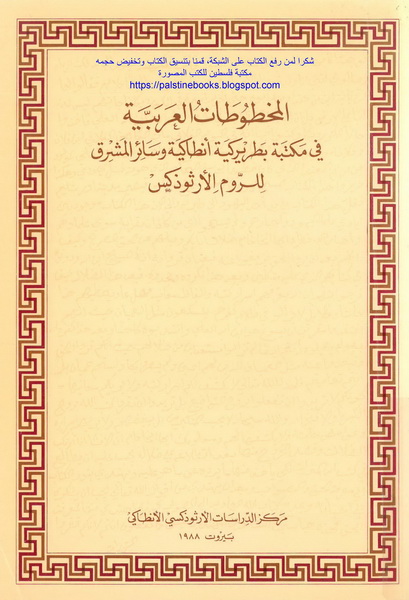 شكرا لمن رفع الكتاب على الشبكة، قمنا بتنسيق الكتاب وتخفيض حجمه
مكتبة فلسطين للكتب المصورة
https://palstinebooks.blogspot.com
المخطوطات العَربَيَّة
في مَكتبَة بطريركية أنطاكية وسَائر المشرق
للرّوم الأرثوذكس
مَركز الدّراسَات الأرثوذكسي الأنطاكي
بَيروت ١٩٨٨